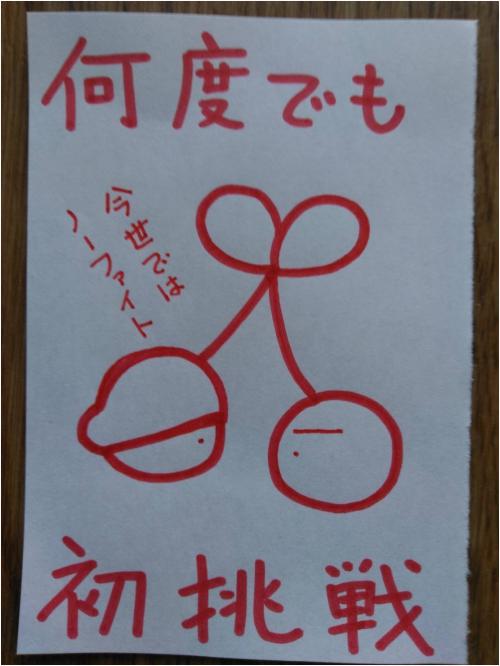 何度でも
今世では
ノーファイト
初挑戦